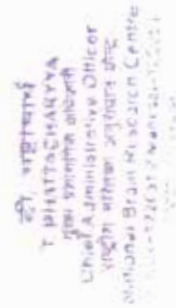 टी. भट्टाचार्य
T BHATTACHARYYA
मुख्य प्रशासनिक अधिकारी
Chief Administrative Officer
राष्ट्रीय मस्तिष्क अनुसंधान केन्द्र
National Brain Research Centre